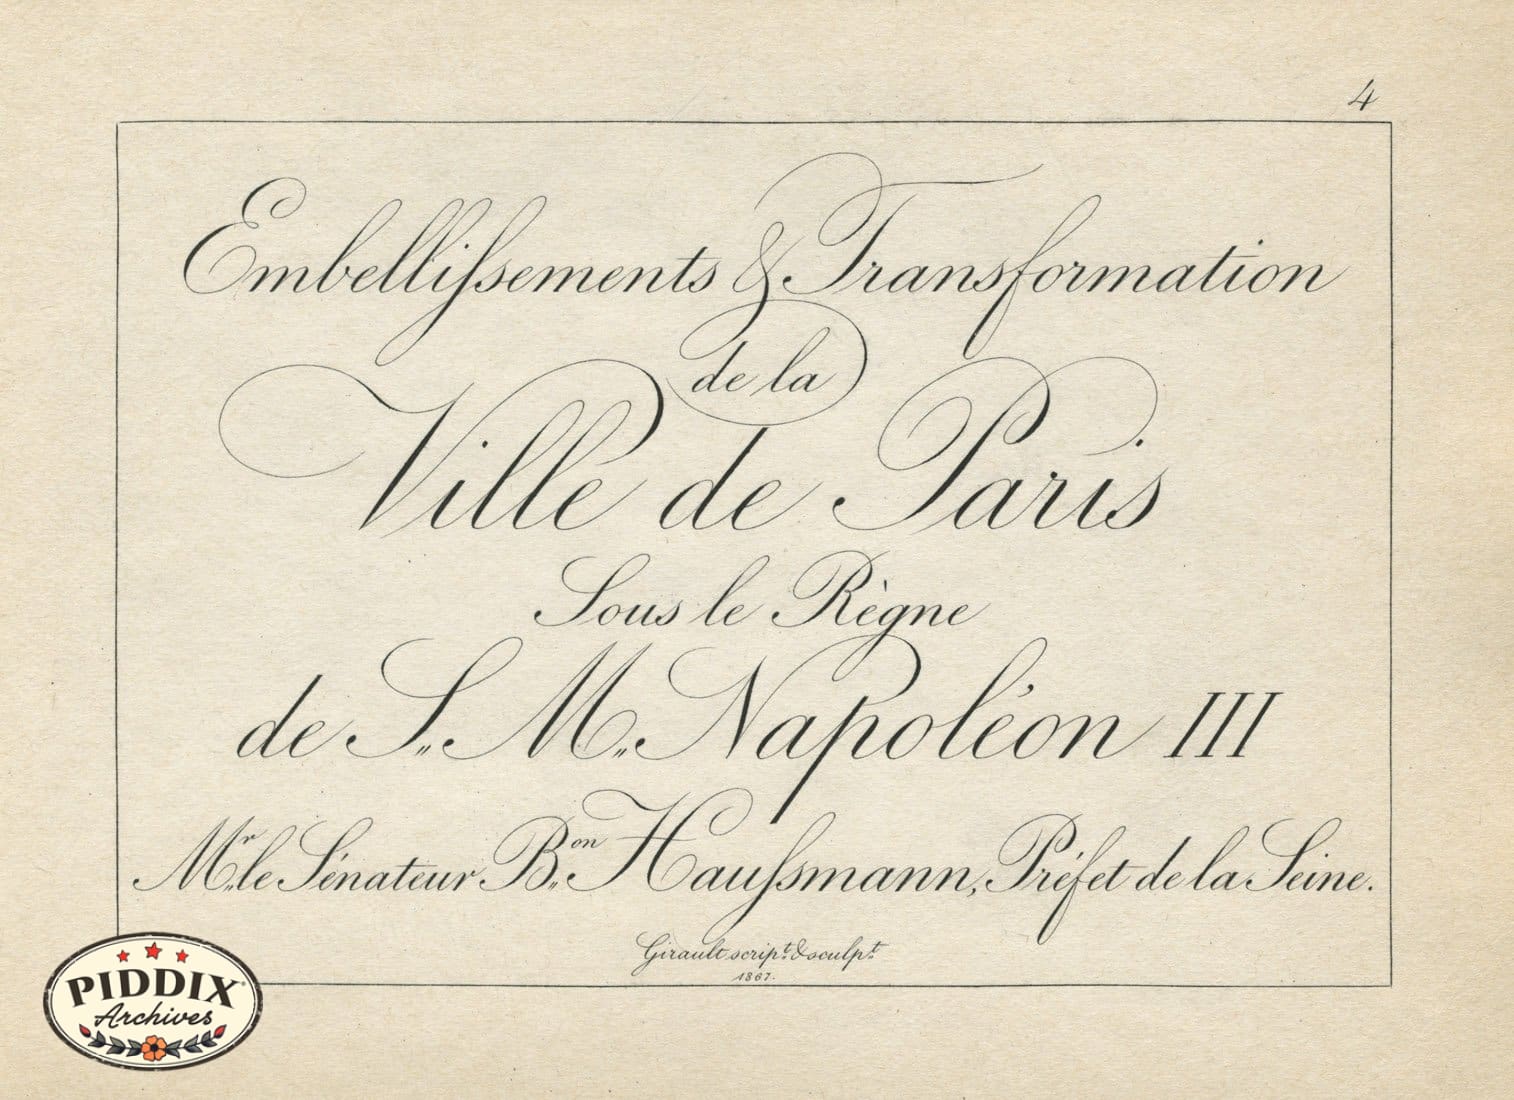 4
Embellissements & Transformation
de la
Ville de Paris
Sous le Règne
de S„. M„. Napoléon III
Mr„. le Sénateur Bon„. Haussmann, Préfet de la Seine.
Girault script. & sculpt.
1867.
PIDDIX
Archives